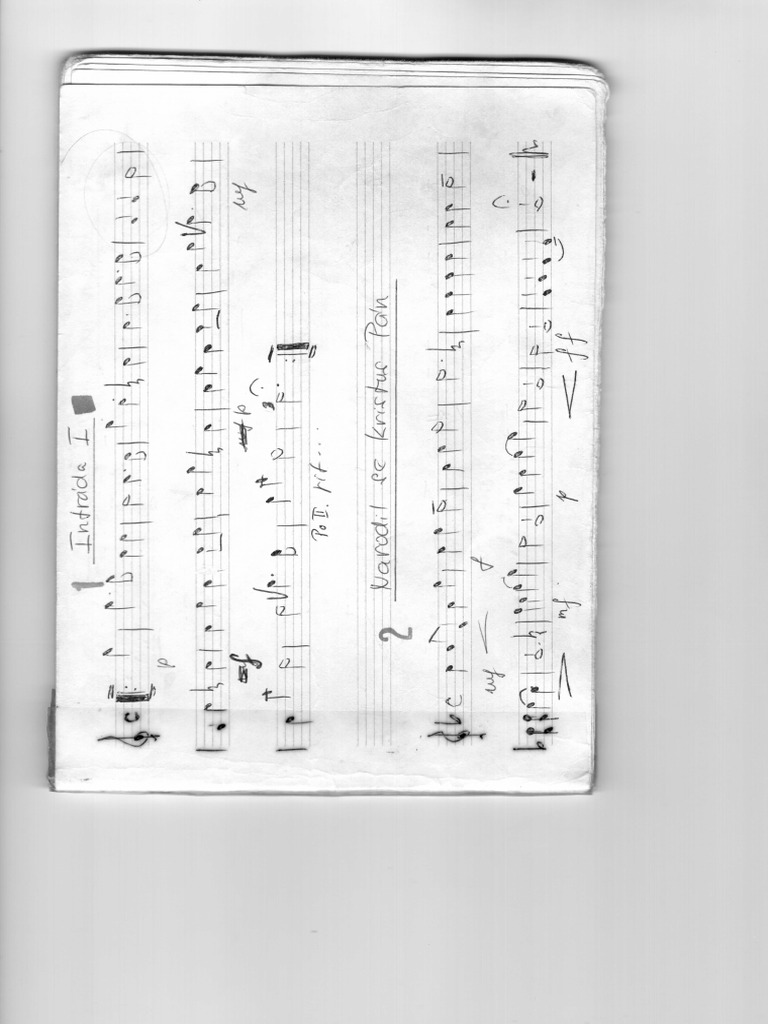 1 Intráda I
p
mf p mf
Po II. rit...
2 Narodil se Kristus Pán
mf f
mf p ff